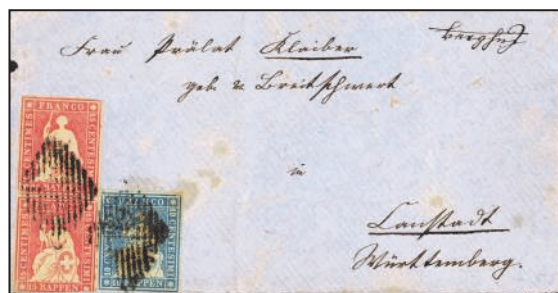 Frau Prälat Klaiber
geb. v. Breitschwert
in
Canstadt
Württemberg.
FRANCO
15 CENTIMES
15 CENTESIMI
15 RAPPEN
FRANCO
10 CENTIMES
10 CENTESIMI
10 RAPPEN